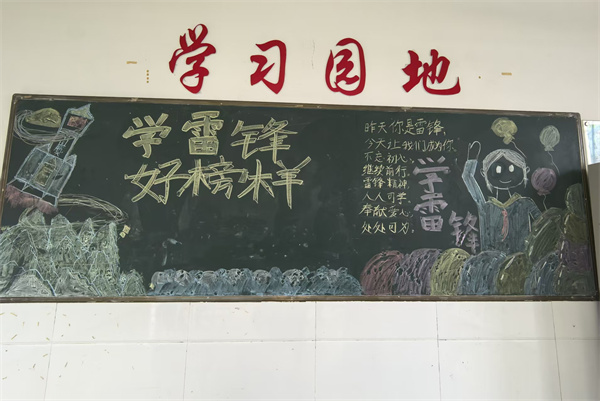 学习园地
学雷锋
好榜样
昨天你是雷锋,
今天让我们成为你,
不忘初心,
继续前行,
雷锋精神,
人人可学,
奉献爱心,
处处可为。
学雷锋